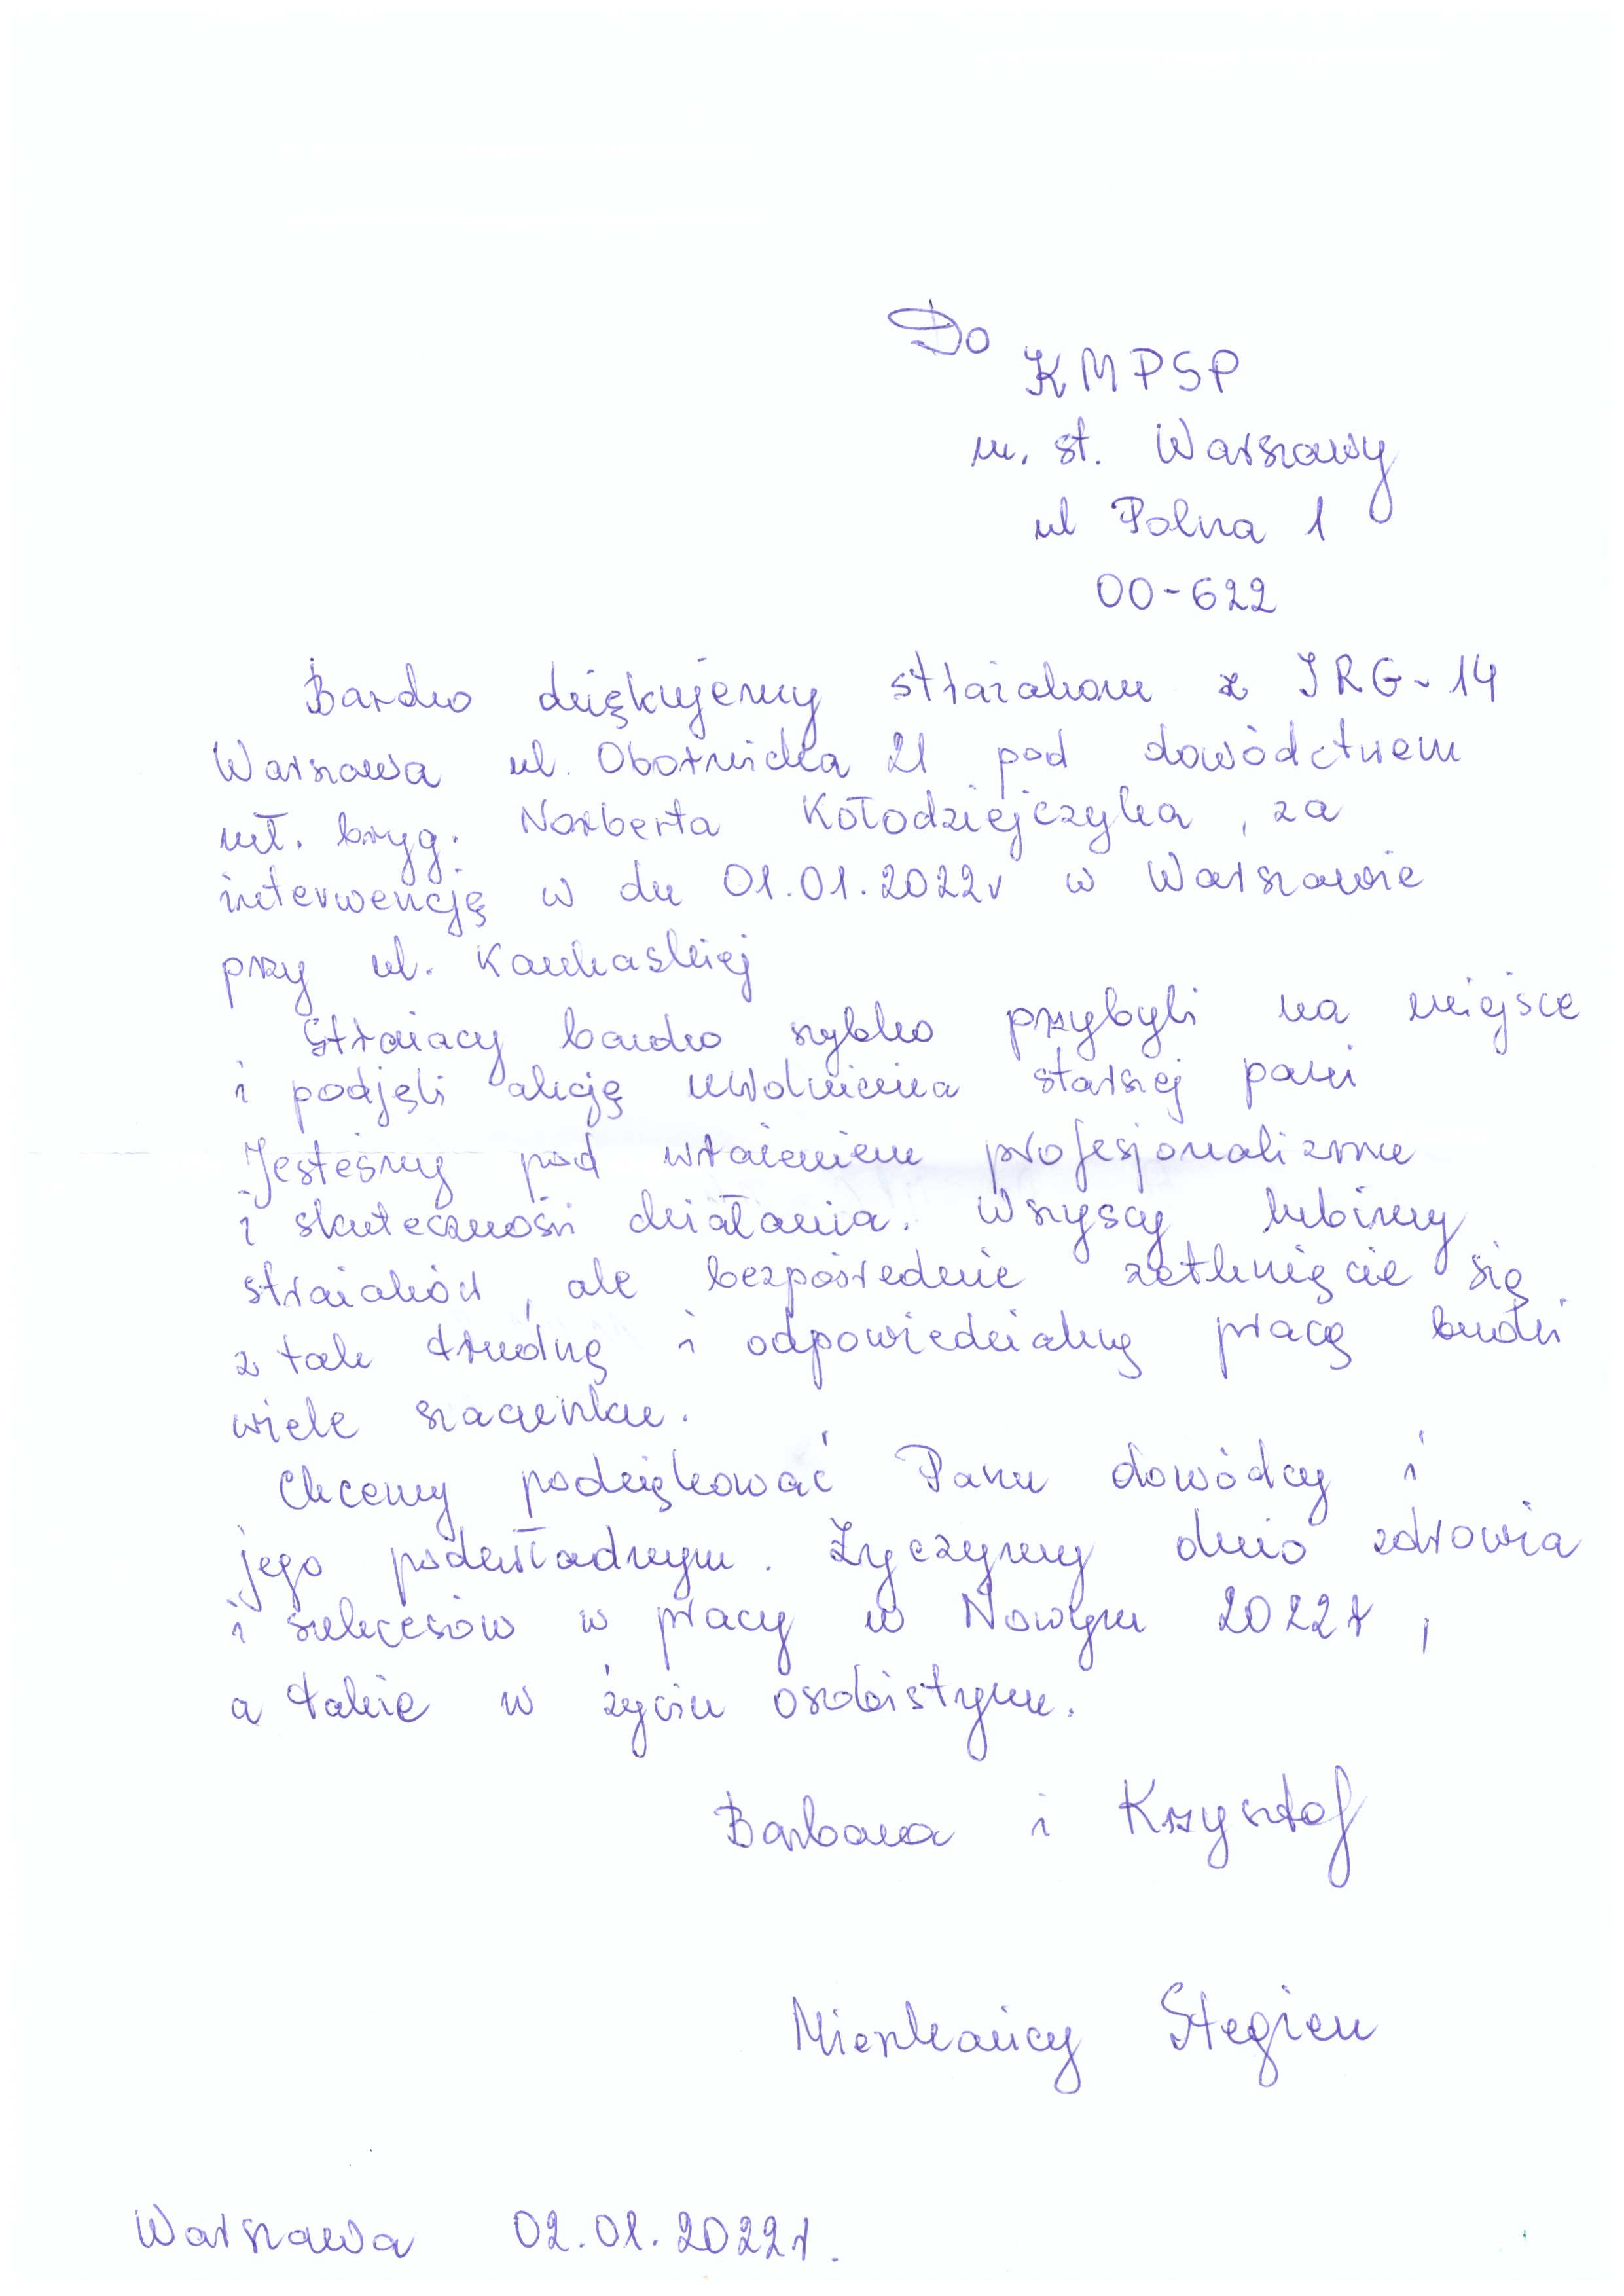 Do
KMPSP
m. st. Warszawy
ul Polna 1
00-622
Bardzo dziękujemy strażakom z JRG-14
Warszawa ul. Obornicka 21 pod dowództwem
mł. bryg. Norberta Kołodziejczyka, za
interwencję w dn 01.01.2022r w Warszawie
przy ul. Kaukaskiej
Strażacy bardzo szybko przybyli na miejsce
i podjęli akcję uwolnienia starszej pani
Jesteśmy pod wrażeniem profesjonalizmu
i skuteczności działania. Wszyscy lubimy
strażaków, ale bezpośrednie zetknięcie się
z tak trudną i odpowiedzialną pracą budzi
wiele szacunku.
Chcemy podziękować Panu dowódcy i
jego podwładnym. Życzymy dużo zdrowia
i sukcesów w pracy w Nowym 2022r,
a także w życiu osobistym.
Barbara i Krzysztof
Mieszkańcy Stegien
Warszawa 02.01.2022r.